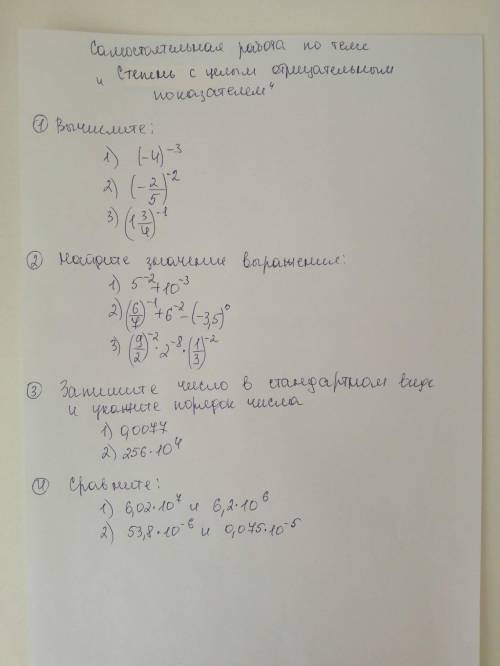 Самостоятельная работа по теме
„ Степень с целым отрицательным
показателем"
① Вычислите:
1) (-4)⁻³
2) (-2/5)⁻²
3) (1 3/4)⁻¹
② Найдите значение выражения:
1) 5⁻²+10⁻³
2) (6/7)⁻¹+6⁻²-(-3,5)⁰
3) (9/2)⁻²·2⁻⁸·(1/3)⁻²
③ Запишите число в стандартном виде
и укажите порядок числа
1) 0,0077
2) 256·10⁴
④ Сравните:
1) 6,02·10⁷ и 6,2·10⁶
2) 53,8·10⁻⁶ и 0,075·10⁻⁵